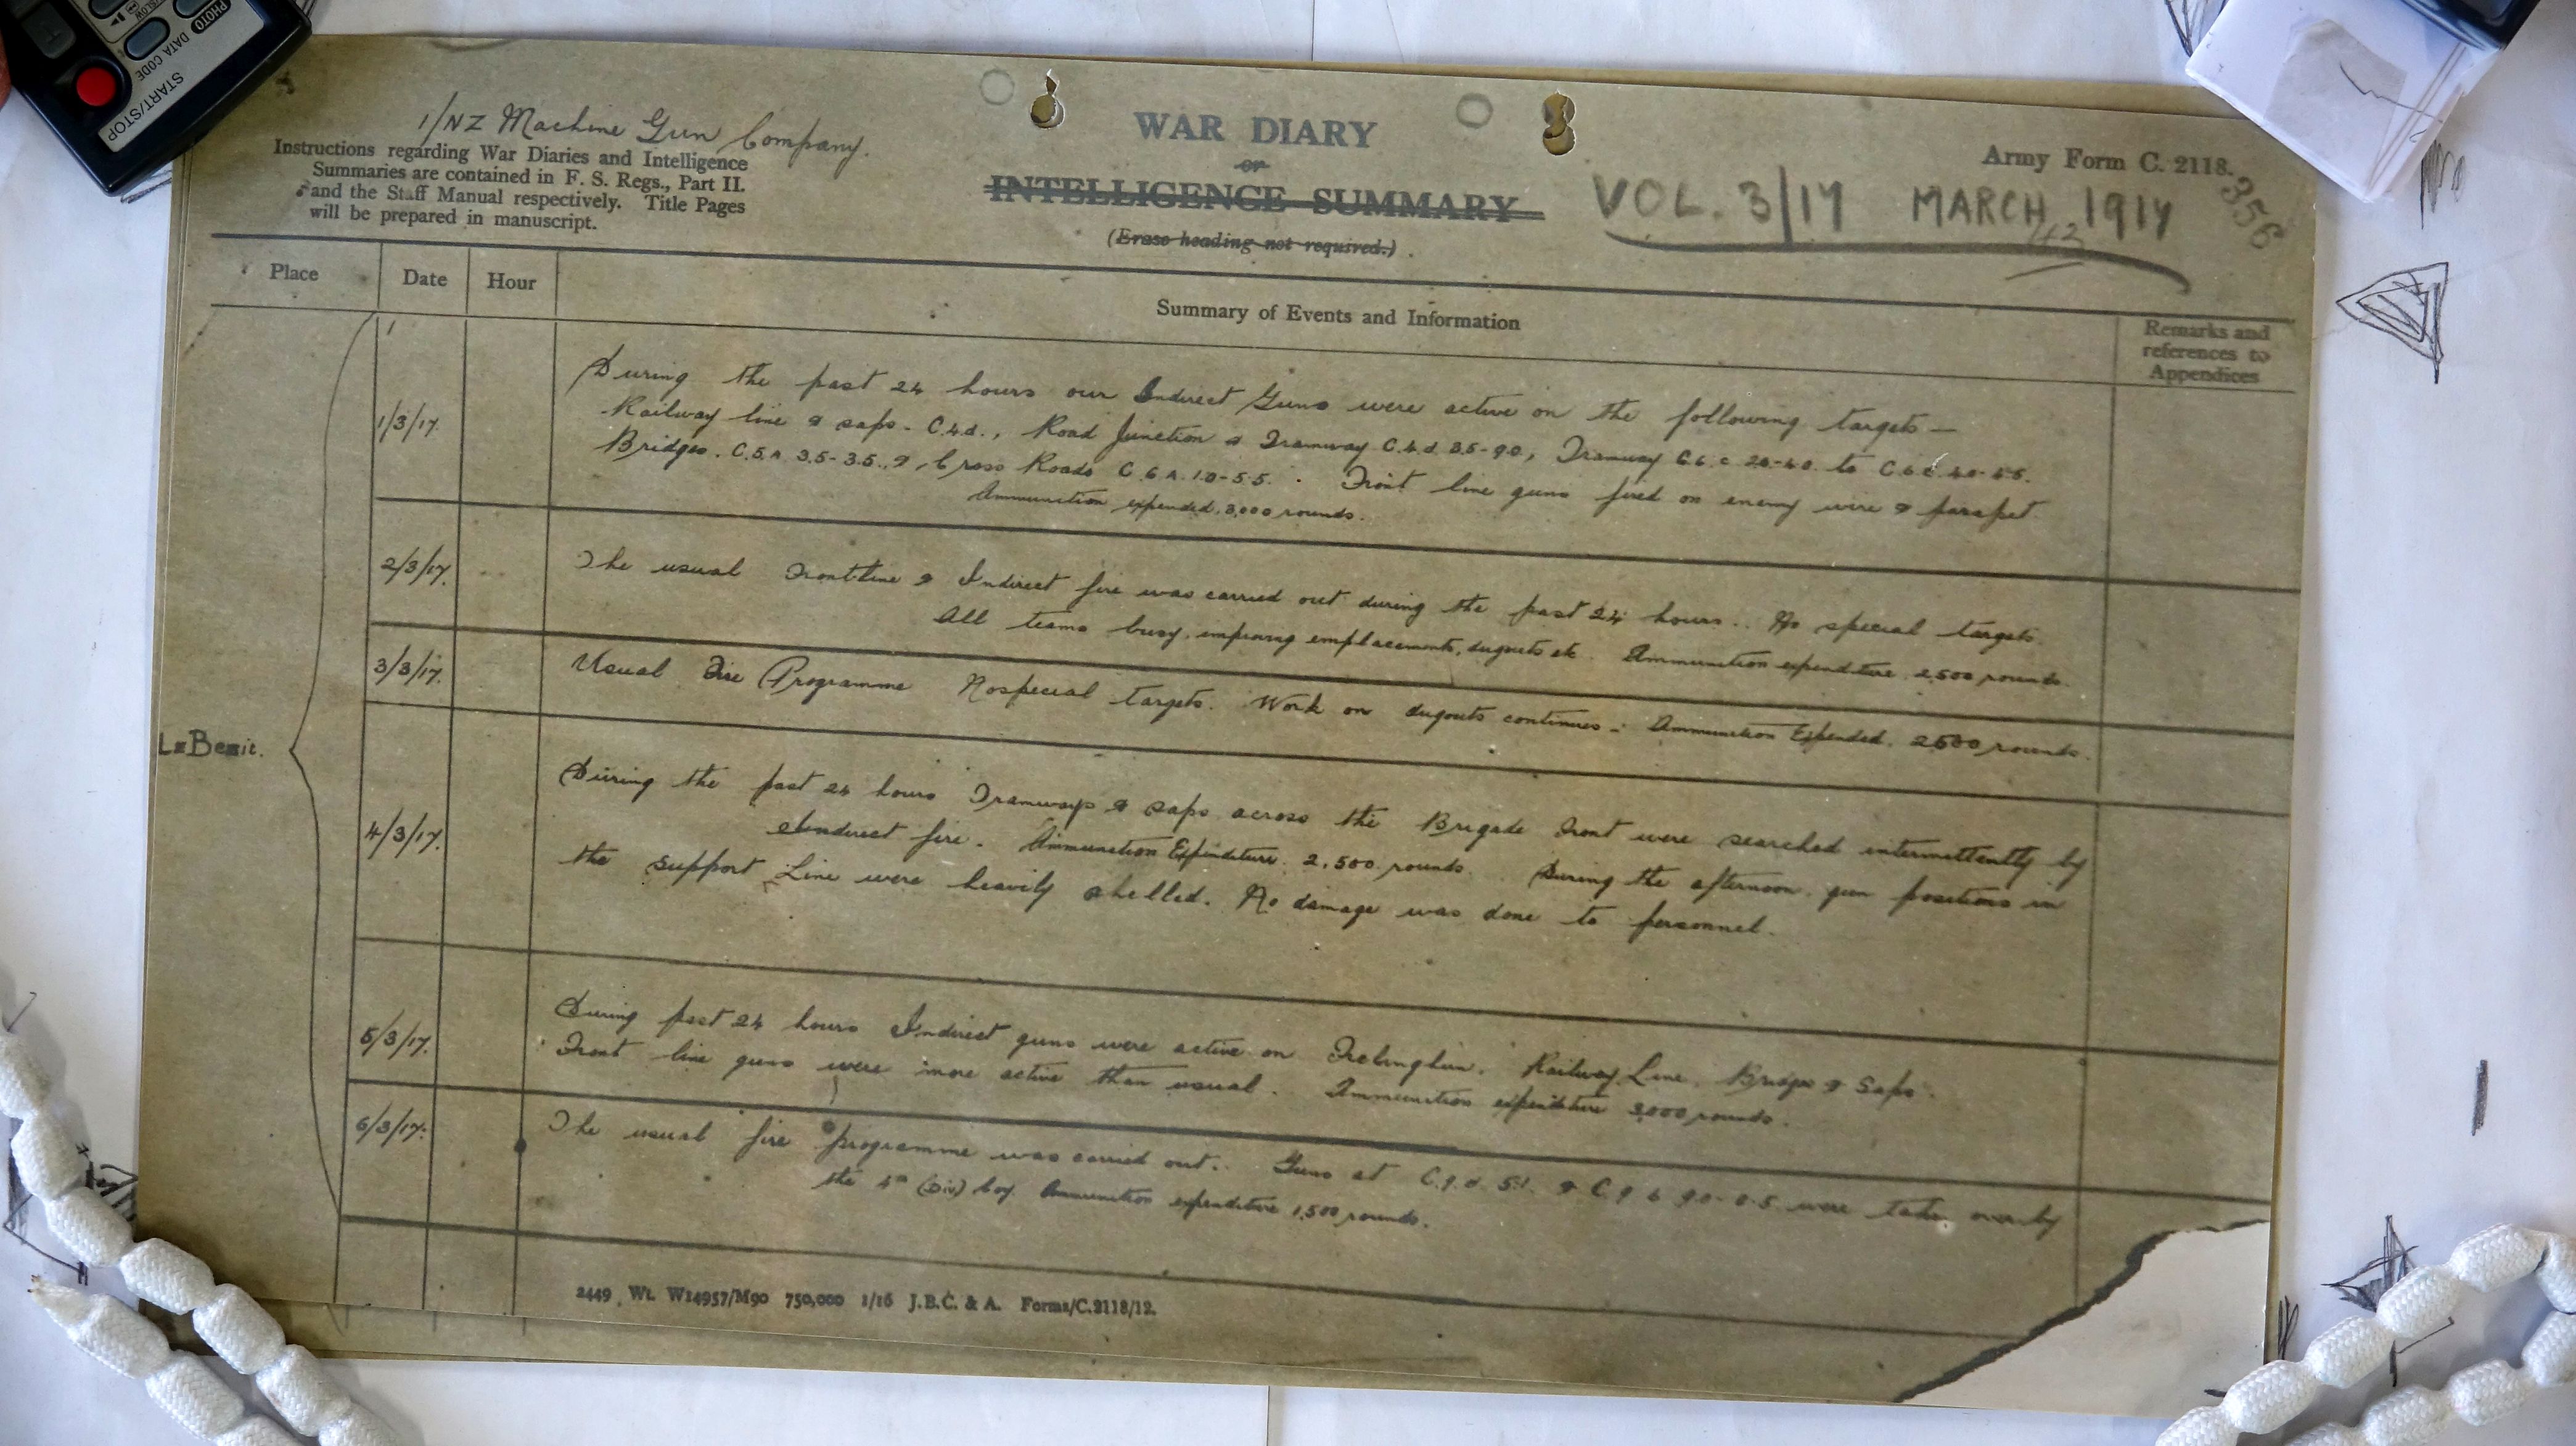 PHOTO
DATA CODE
START/STOP
1/NZ Machine Gun Company.
Instructions regarding War Diaries and Intelligence
Summaries are contained in F. S. Regs., Part II.
and the Staff Manual respectively. Title Pages
will be prepared in manuscript.
WAR DIARY
or
INTELLIGENCE SUMMARY
(Erase heading not required.)
Army Form C. 2118.
356
VOL. 3/17 MARCH 1917
43
Place Date Hour
Summary of Events and Information
Remarks and
references to
Appendices
1/3/17. During the past 24 hours our Indirect Guns were active on the following targets —
Railway line & saps - C.4.d., Road Junction & Tramway C.4.d. 3.5-9.0, Tramway C.6.c. 20-40 to C.6.c. 40-
Bridges. C.5.A 3.5-3.5., & Cross Roads C.6.A.1.0-5.5. Front line guns fired on enemy wire & parapet.
Ammunition expended. 3,000 rounds.
2/3/17. The usual Front-line & Indirect fire was carried out during the past 24 hours. No special targets.
All teams busy, improving emplacements, dugouts etc. Ammunition expenditure 2,500 rounds.
3/3/17. Usual Fire Programme No special targets. Work on dugouts continues - Ammunition Expended. 2500 rounds.
Le Bezic.
4/3/17. During the past 24 hours Tramways & saps across the Brigade Front were searched intermittently by
Indirect fire. Ammunition Expenditure. 2,500 rounds. During the afternoon gun positions in
the support Line were heavily shelled. No damage was done to personnel.
5/3/17. During past 24 hours Indirect guns were active on Frelinghien, Railway Line, Bridge & Saps.
Front line guns were more active than usual. Ammunition expenditure 3,000 rounds.
6/3/17. The usual fire programme was carried out. Guns at C.9.d. 5.1. & C.9.b 90-0.5 were taken over by
the 4th (Div) Coy Ammunition expenditure 1,500 rounds.
2449 Wt. W14957/M90 750,000 1/16 J.B.C. & A. Forms/C.2118/12.